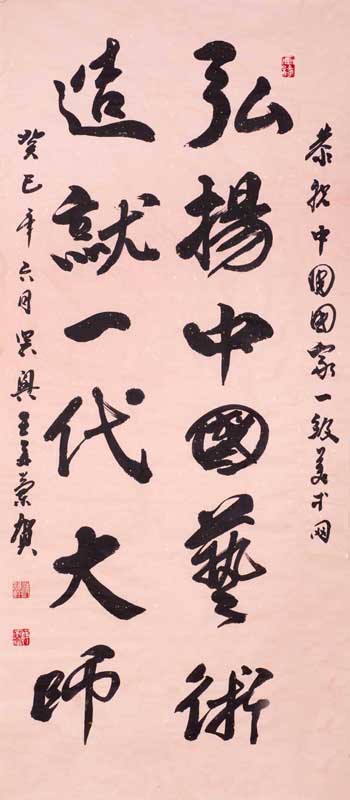 恭祝中国国家一级美术网
弘揚中國藝術
造就一代大師
癸巳年六月吴興王
賀